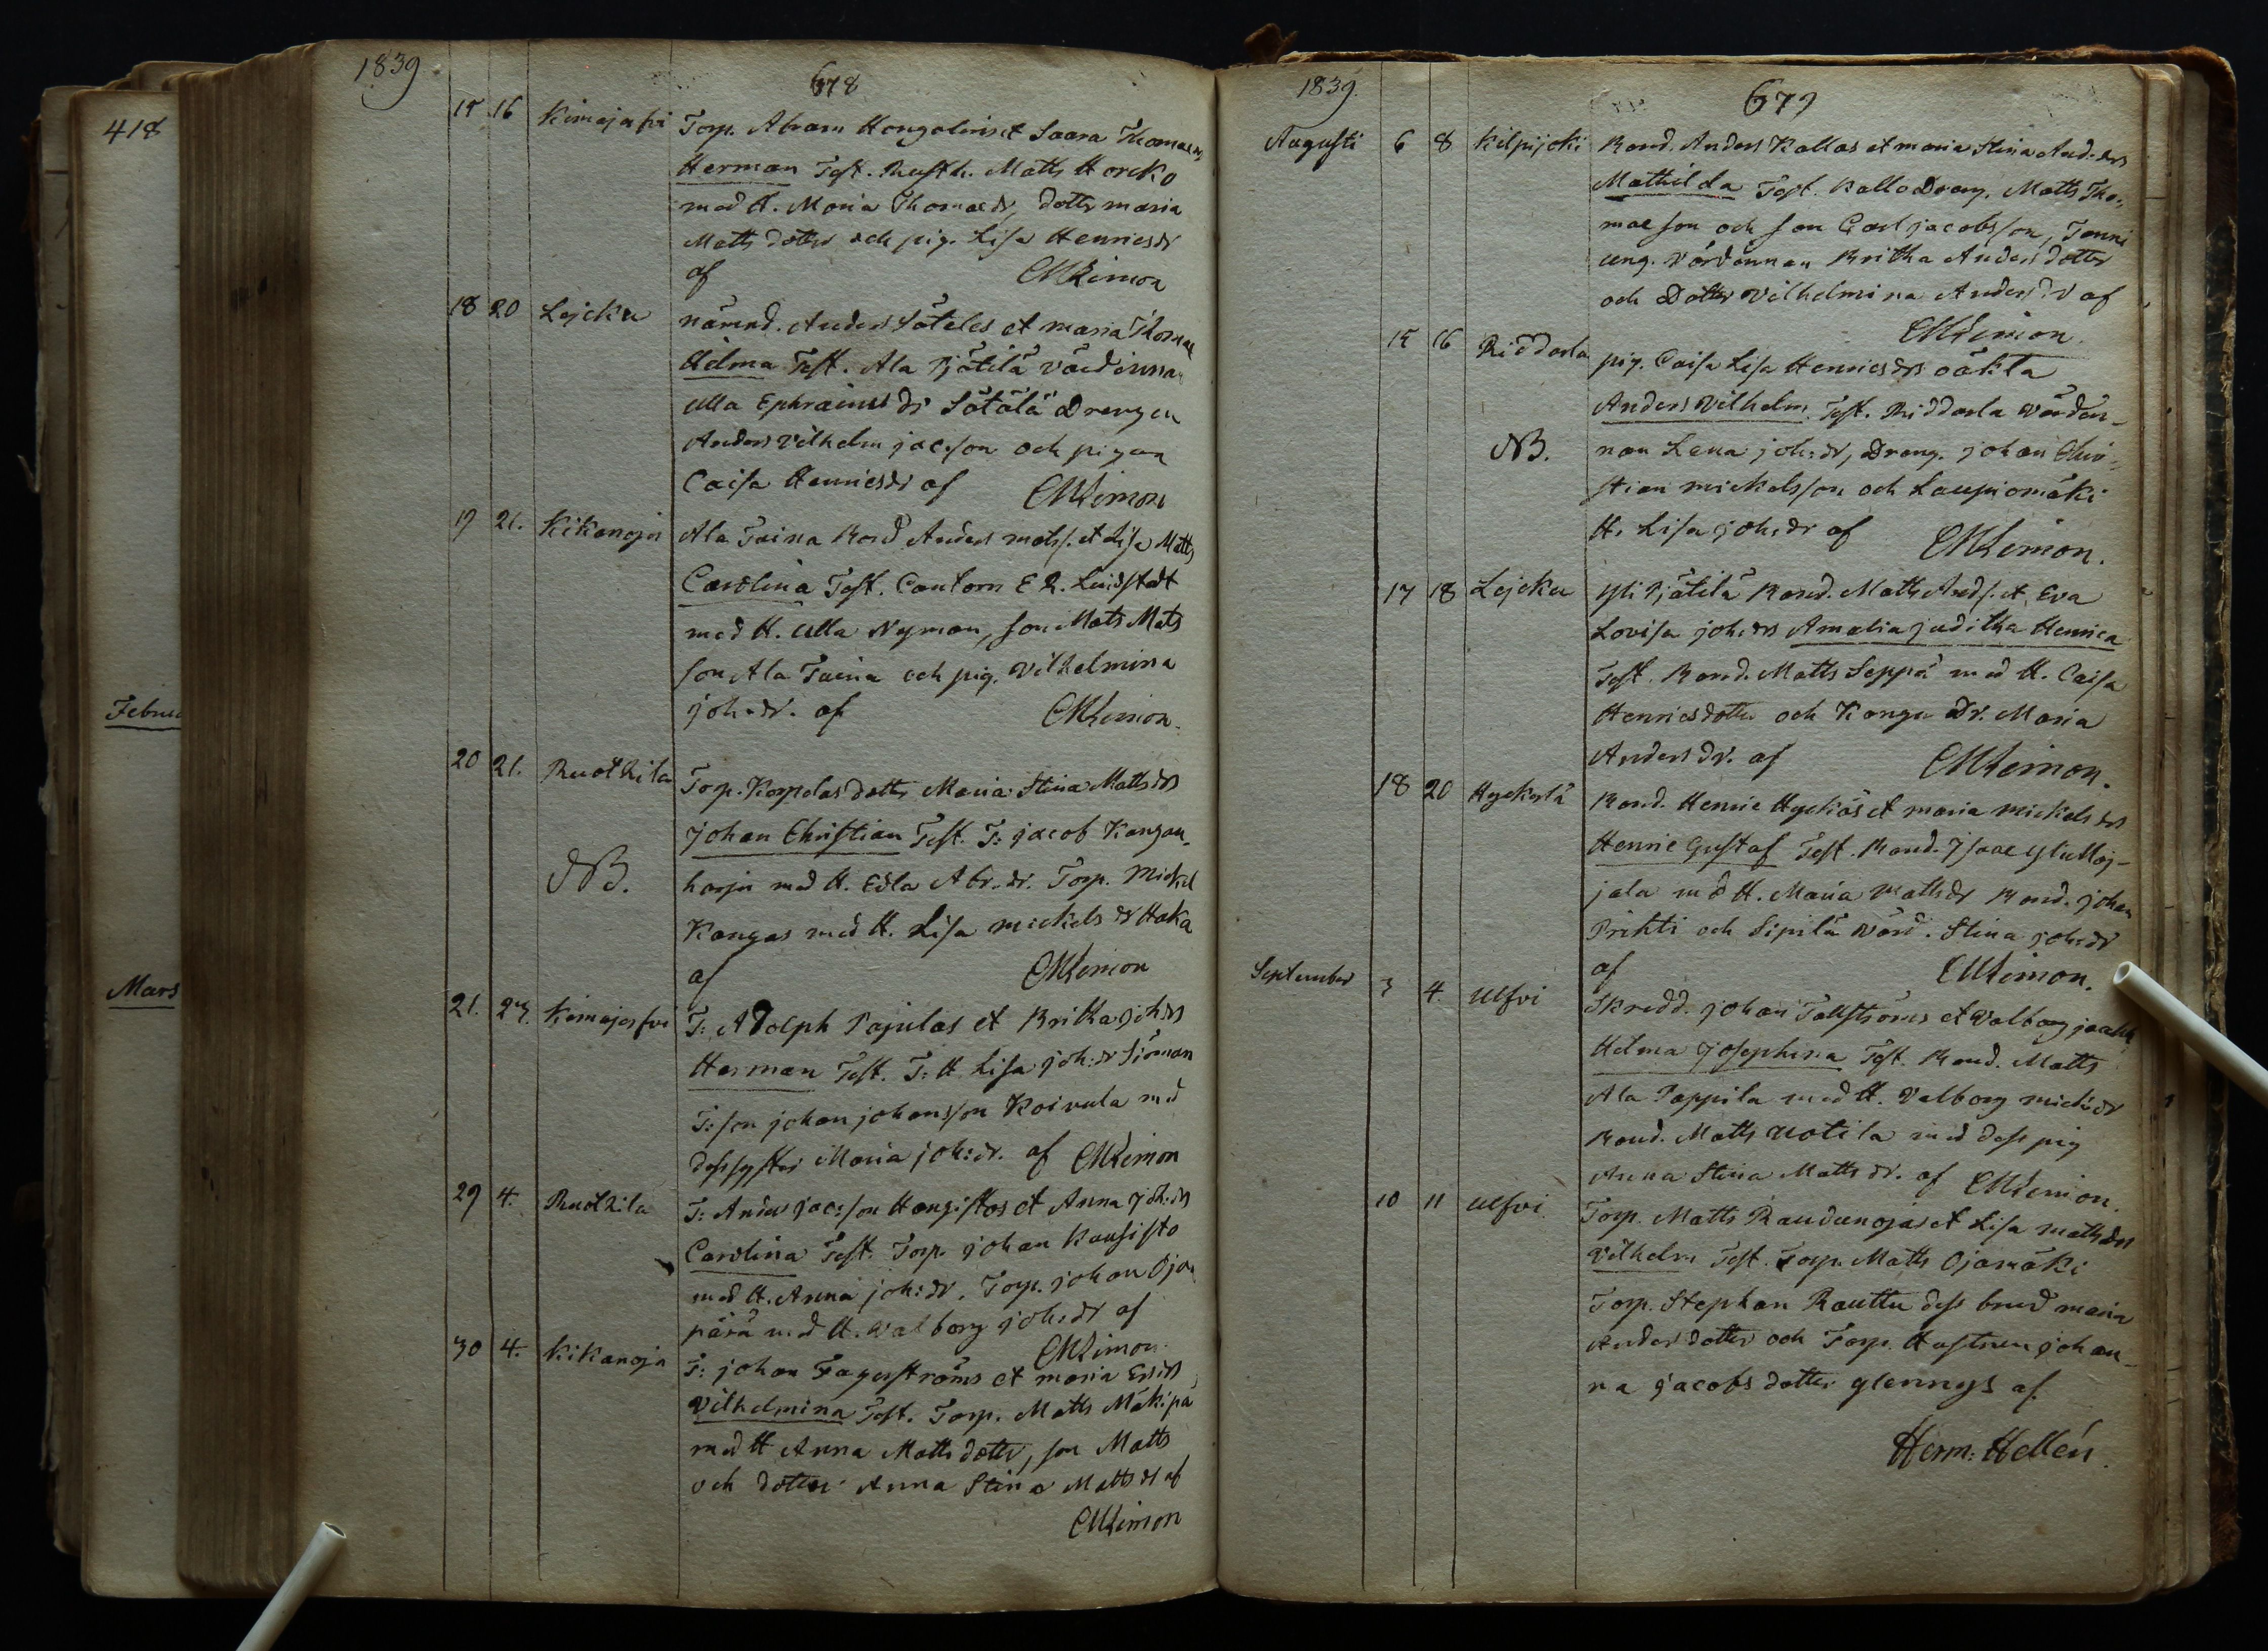 418
Februa
Mars
1839
678
15 16 Kimajerfvi Torp. Abram Hongolinis et Saara Thomaedr
Herman Test. Rusth. Matts Horcko
med H. Maria Thomaedr, dottr maria
Matts dotter och pig. Lisa Henricsdr
af CMLimon
18 20 Lejcku nämnd. Anders Sätelös et maria Thomae
Helma Test. Ala Pjätilä värdinna
Ulla Ephraimsdr Sätälä Drengen
Anders Vilhelm jacsson och pigan
Caisa Henricsdr af CMLimon
19 21. Kikanoja Ala Taina Bond Anders matss. et Lisa Matts
Carolina Test. Cantorn E R. Lindstedt
med H. Ulla Nyman, son Mats Mats
son Ala Taina och pig. Vilhelmina
joh:dr. af CMLimon.
20 21. Ruothila Torp. Korpelas dottr Maria Stina Mattsdrs
Johan Christian Test. T: jacob Kangan-
NB. harju med H. Edla Abr.dr. Torp. Mickel
Kangas med H. Lisa mickelsdr Haka
af CMLimon
21. 23. Kimajerfvi T: Adolph Papilas et Britha joh:drs
Herman Test. T: H. Lisa joh:dr Sjöman
T: son johan johansson Koivula med
dess syster Maria joh:dr. af CMLimon
29 4. Ruothila T: Anders jac:son Hongistos et Anna joh:drs
Carolina Test. Torp. johan Kausisto
med H. Anna joh:dr. Torp. johan Ojan
pärä med H. Valborg joh:dr af
CMLimon.
30 4. Kikanoja T: johan Fagerströms et maria Ersdrs
Vilhelmina Test. Torp. Matts Mäkipä
med H Anna Matts dotter, son Matts
och dotter Anna Stina Mattsdr af
CMLimon
1839.
679
Augusti 6 8 Kilpijoki Bond. Anders Kallas et maria Stina And:drs
Mathilda Test. Kallo Dreng. Matts Tho-
mae son och son Carl jacobsson, Tanni
ung. värdinnan Britha Anders dotter
och Dotter Vilhelmina Andersdr af
CMLimon.
15 16 Riddarla pig. Caisa Lisa Henricsdrs oäkta
Anders Vilhelm Test. Riddarla Värdin-
NB. nan Lena joh:dr, Dreng. johan Chri-
stian mickelsson och Laupiomäki
H. Lisa joh:dr af CMLimon.
17 18 Lejcku Yli Pjätilä Bond. Matts Ands. et Eva
Lovisa joh:drs Amalia juditha Henrica
Test. Bond. Matts Seppä med H. Caisa
Henricsdotter och Kangu Dr. Maria
Anders dr. af CMLimon.
18 20 Hyckylä Bond. Henric Hyckös et maria mickelsdrs
Henric Gustaf Test. Bond. Isaac Ylistoj-
jala med H. Maria Mattsdr Bond. johan
Prihti och Sipilä värd. Stina joh:dr
af CMLimon.
September 3 4. Ulfvi Skredd. johan Tallströms et Valborg
Helma Josephina Test. Bond. Matts
Ala Pappila med H. Valborg mick:dr
Bond. Matts Uotila med dess pig
Anna Stina Matts dr. af CMLimon.
10 11 Ulfvi Torp. Matts Raudunojas et Lisa mattsdrs
Vilhelm Test. Torp. Matts Ojamäki
Torp. Stephan Rauttu dess brud maria
Anders dotter och Torp. Hustrun johan-
na Jacobs dotter glennys af.
Herm: Hellén.